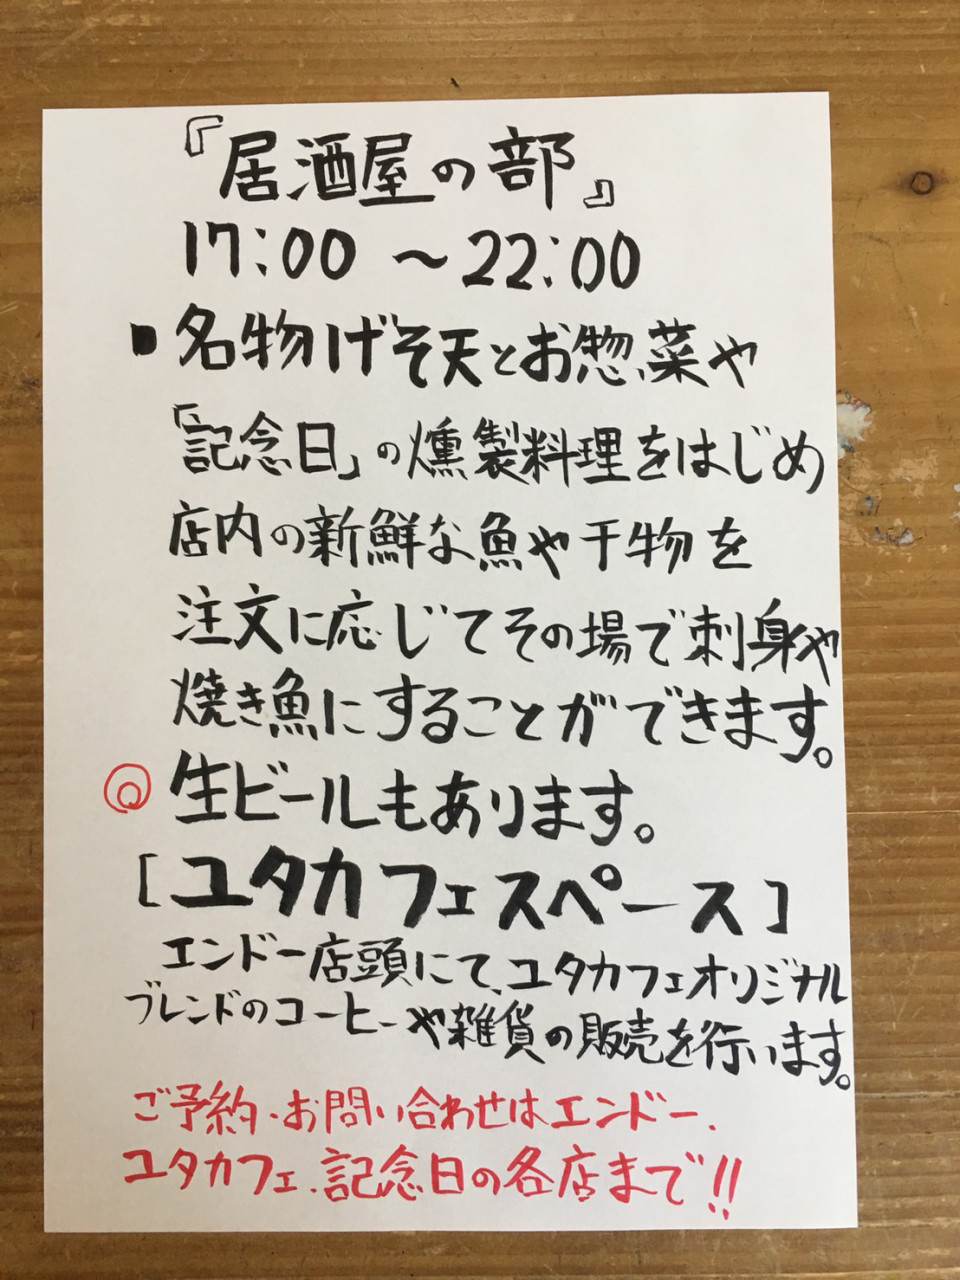 『居酒屋の部』
17:00 〜22:00
▪名物げそ天とお惣菜や
「記念日」の燻製料理をはじめ
店内の新鮮な魚や干物を
注文に応じてその場で刺身や
焼き魚にすることができます。
◎生ビールもあります。
[ユタカフェスペース]
エンドー店頭にて、ユタカフェオリジナル
ブレンドのコーヒーや雑貨の販売を行います。
ご予約・お問い合わせはエンドー、
ユタカフェ、記念日の各店まで!!